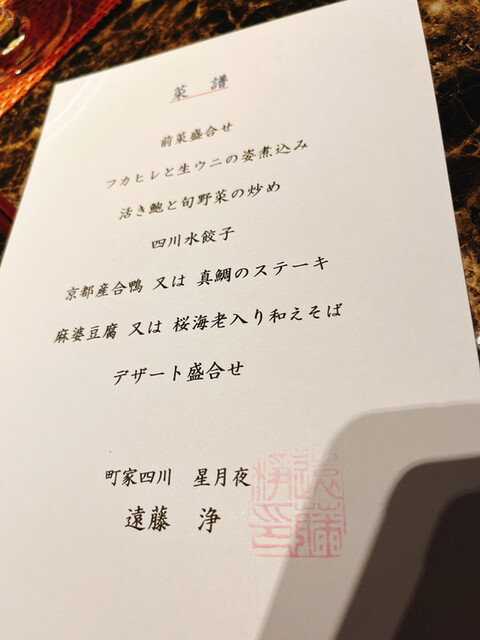 菜 譜
前菜盛合せ
フカヒレと生ウニの姿煮込み
活き鮑と旬野菜の炒め
四川水餃子
京都産合鴨 又は 真鯛のステーキ
麻婆豆腐 又は 桜海老入り和えそば
デザート盛合せ
町家四川 星月夜
遠藤 浄
遠藤
浄印